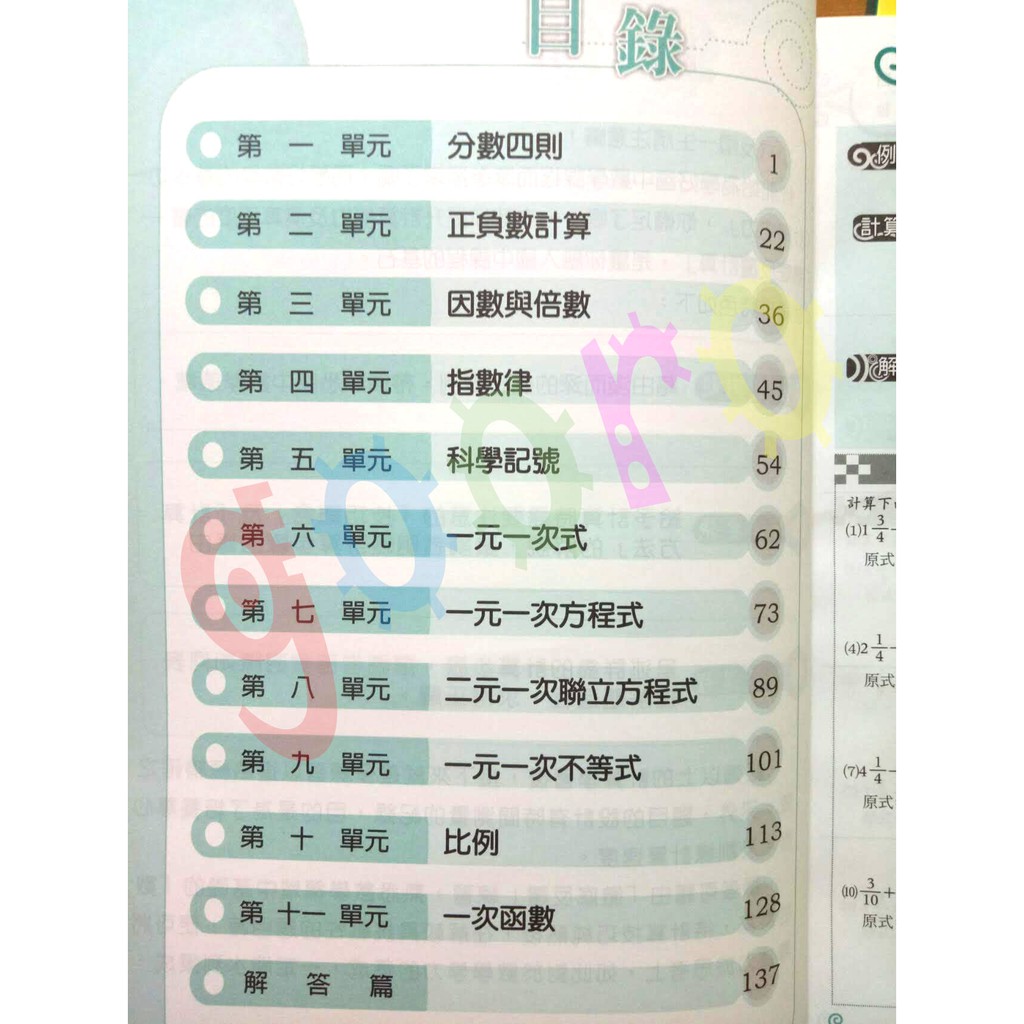 目錄
第 一 單元 分數四則 1
第 二 單元 正負數計算 22
第 三 單元 因數與倍數 36
第 四 單元 指數律 45
第 五 單元 科學記號 54
第 六 單元 一元一次式 62
第 七 單元 一元一次方程式 73
第 八 單元 二元一次聯立方程式 89
第 九 單元 一元一次不等式 101
第 十 單元 比例 113
第 十一 單元 一次函數 128
解 答 篇 137
goara
例
計算
解
計算下
(1) 1 3/4 -
原式
(4) 2 1/4 -
原式
(7) 4 1/4 -
原式
(10) 3/10 +
原式